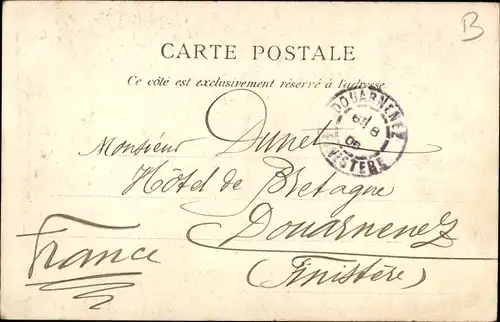 B
CARTE POSTALE
Ce côté est exclusivement réservé à l'adresse
DOUARNENEZ
8
05
FINISTERE
Monsieur Dunet
Hôtel de Bretagne
Douarnenez
(Finistère)
France